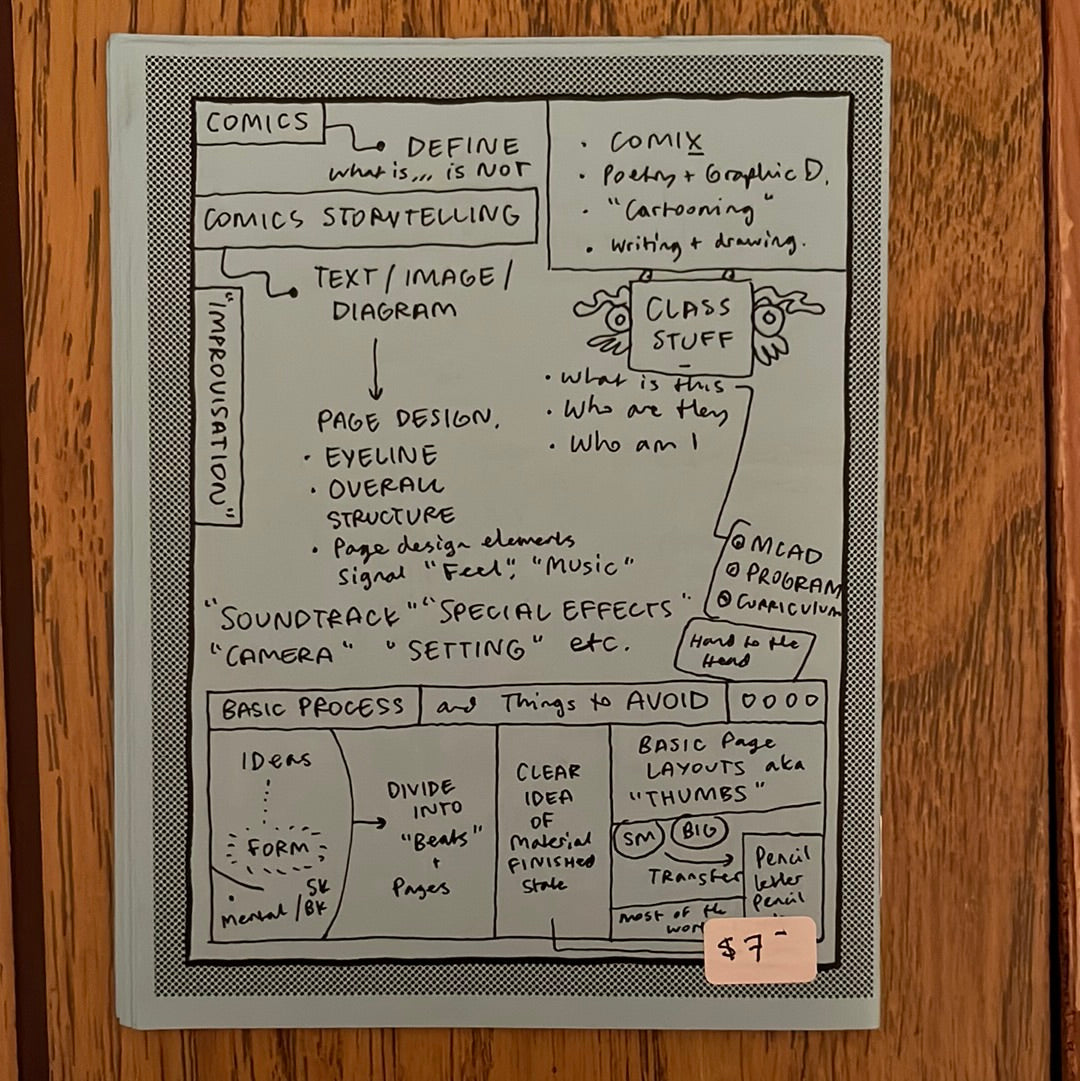 COMICS
DEFINE
what is... is NOT
COMICS STORYTELLING
TEXT / IMAGE /
DIAGRAM
"IMPROVISATION"
PAGE DESIGN.
• EYELINE
• OVERALL
STRUCTURE
• Page design elements
signal "Feel", "Music"
"SOUNDTRACK" "SPECIAL EFFECTS"
"CAMERA" "SETTING" etc.
• COMIX
• Poetry + Graphic D.
• "Cartooning"
• writing + drawing.
CLASS
STUFF
• What is this
• Who are they
• Who am I
MCAD
PROGRAM
CURRICULUM
Hand to the
Head
BASIC PROCESS and Things to AVOID
IDeas
FORM
Mental / SK
BK
DIVIDE
INTO
"Beats"
+
Pages
CLEAR
IDEA
OF
Material
FINISHED
State
BASIC Page
LAYOUTS aka
"THUMBS"
SM BIG
TRANSfer
most of the
Pencil
letter
Pencil
$7-